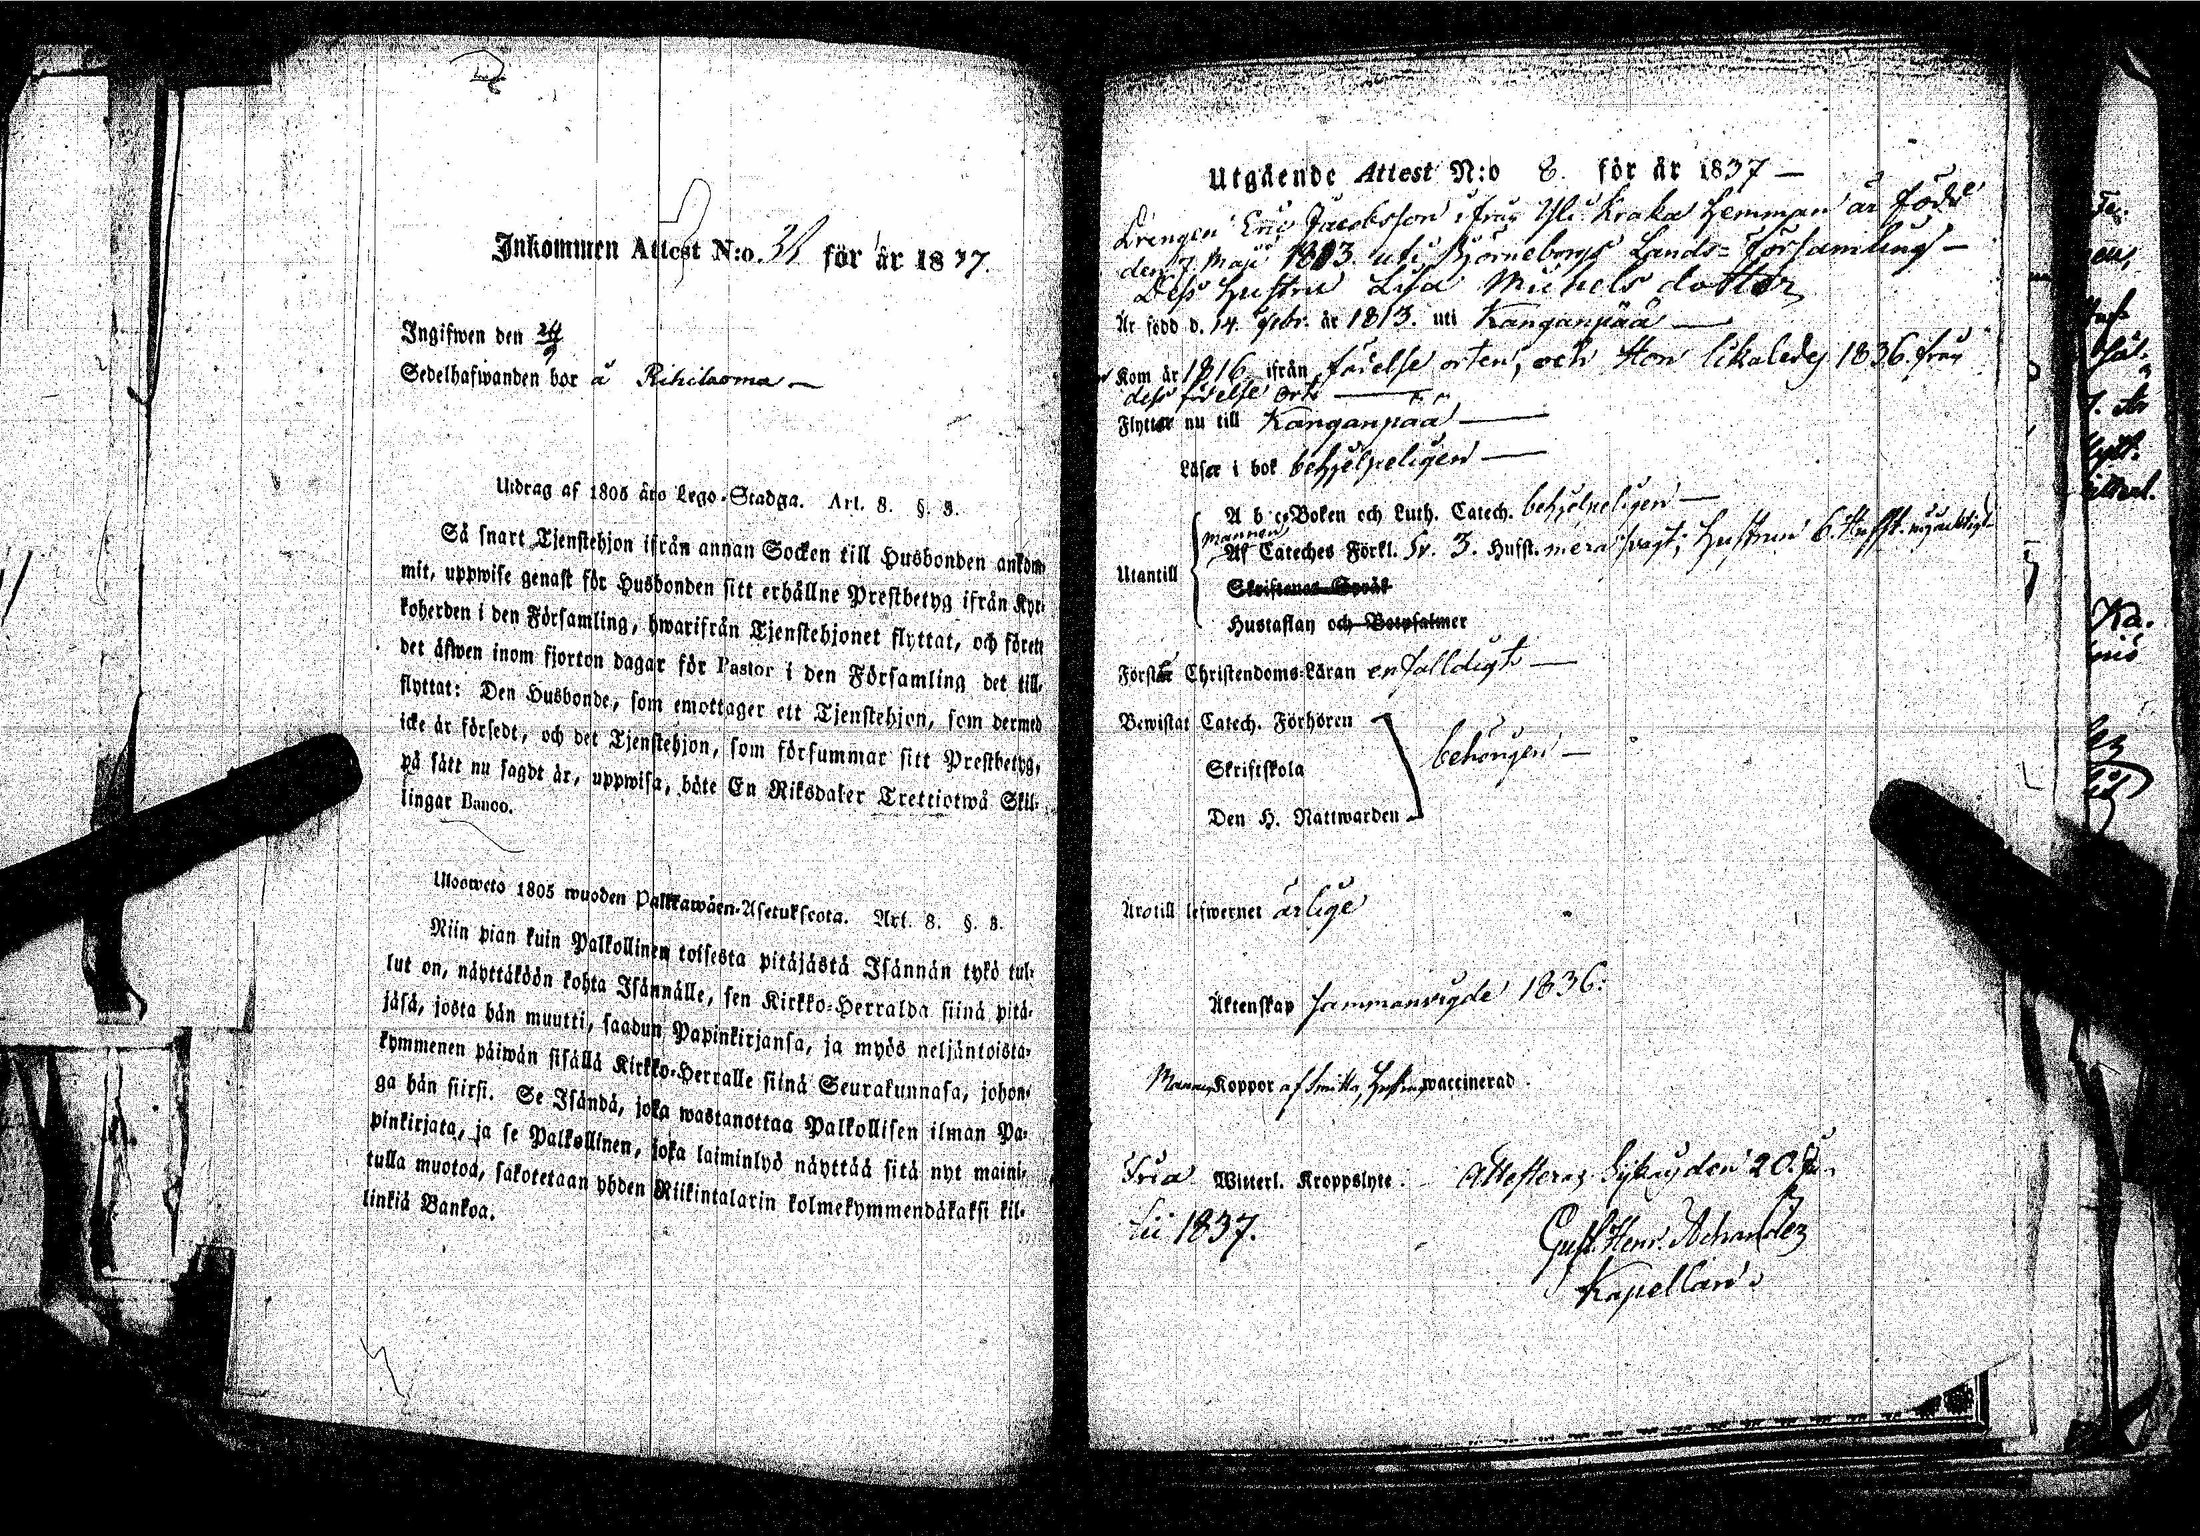 Inkommen Attest N:o. för år 1837.
Ingifwen den 24/9
Sedelhafwanden bor å Rihiluoma
Utdrag af 1805 års Lego-Stadga. Art. 8. §. 3.
Så snart Tjenstehjon ifrån annan Socken till Husbonden ankom-
mit, uppwise genast för Husbonden sitt erhållne Prestbetyg ifrån Kyr-
koherden i den Församling, hwarifrån Tjenstehjonet flyttat, och förete
det äfwen inom fjorton dagar för Pastor i den Församling det till-
flyttat: Den Husbonde, som emottager ett Tjenstehjon, som dermed
icke är försedt, och det Tjenstehjon, som försummar sitt Prestbetyg,
på sätt nu sagdt är, uppwisa, böte En Riksdaler Trettiotwå Skil-
lingar Banco.
Ulosweto 1805 wuoden Palkkawäen-Asetuksesta. Art. 8. §. 3.
Niin pian kuin Palkollinen toisesta pitäjästä Isännän tykö tul-
lut on, näyttäköön kohta Isännälle, sen Kirkko-Herralda siinä pitä-
jäsä, josta hän muutti, saadun Papinkirjansa, ja myös neljäntoista-
kymmenen päiwän sisällä Kirkko-Herralle siinä Seurakunnasa, johon-
ga hän siirsi. Se Isändä, joka wastanottaa Palkollisen ilman Pa-
pinkirjata, ja se Palkollinen, joka laiminlyö näyttää sitä nyt maini-
tulla muotoa, sakotetaan yhden Riikintalarin kolmekymmendäkaksi kil-
linkiä Bankoa.
Utgående Attest N:o 8. för år 1837
Drengen Eric Jacobsson ifrån Yli Kraka Hemman är född
den 7. Maji 1803 uti Björneborgs Lands-Församling
Dess Hustru Lisa Michelsdotter
Är född d. 14. Febr. år 1813. uti Kanganpää
Kom år 1816 ifrån födelse orten, och Hon likaledes 1836. från
dess födelse ort
Flyttar nu till Kanganpää
Läser i bok behjelpeligen
A b c Boken och Luth. Catech. behjelpeligen
mannen
Utantill Af Cateches Förkl. Sv. 3. Hufst. mera svagt; Hustrun 6. Hufst.
Skriftenes Språk
Hustaflan och Botpsalmer
Förstår Christendoms-Läran enfalldigt
Bewistat Catech. Förhören
Skriftskola behörigen
Den H. Nattwarden
Äro till lefwernet ärlige
Äktenskap sammanvigde 1836.
Mannen Koppor af Smitta, Hustrun waccinerad.
Fria Witterl. Kroppslyte. Attesteras den 20. Ju-
lii 1837.
Gust. Henr.
Kapellan.